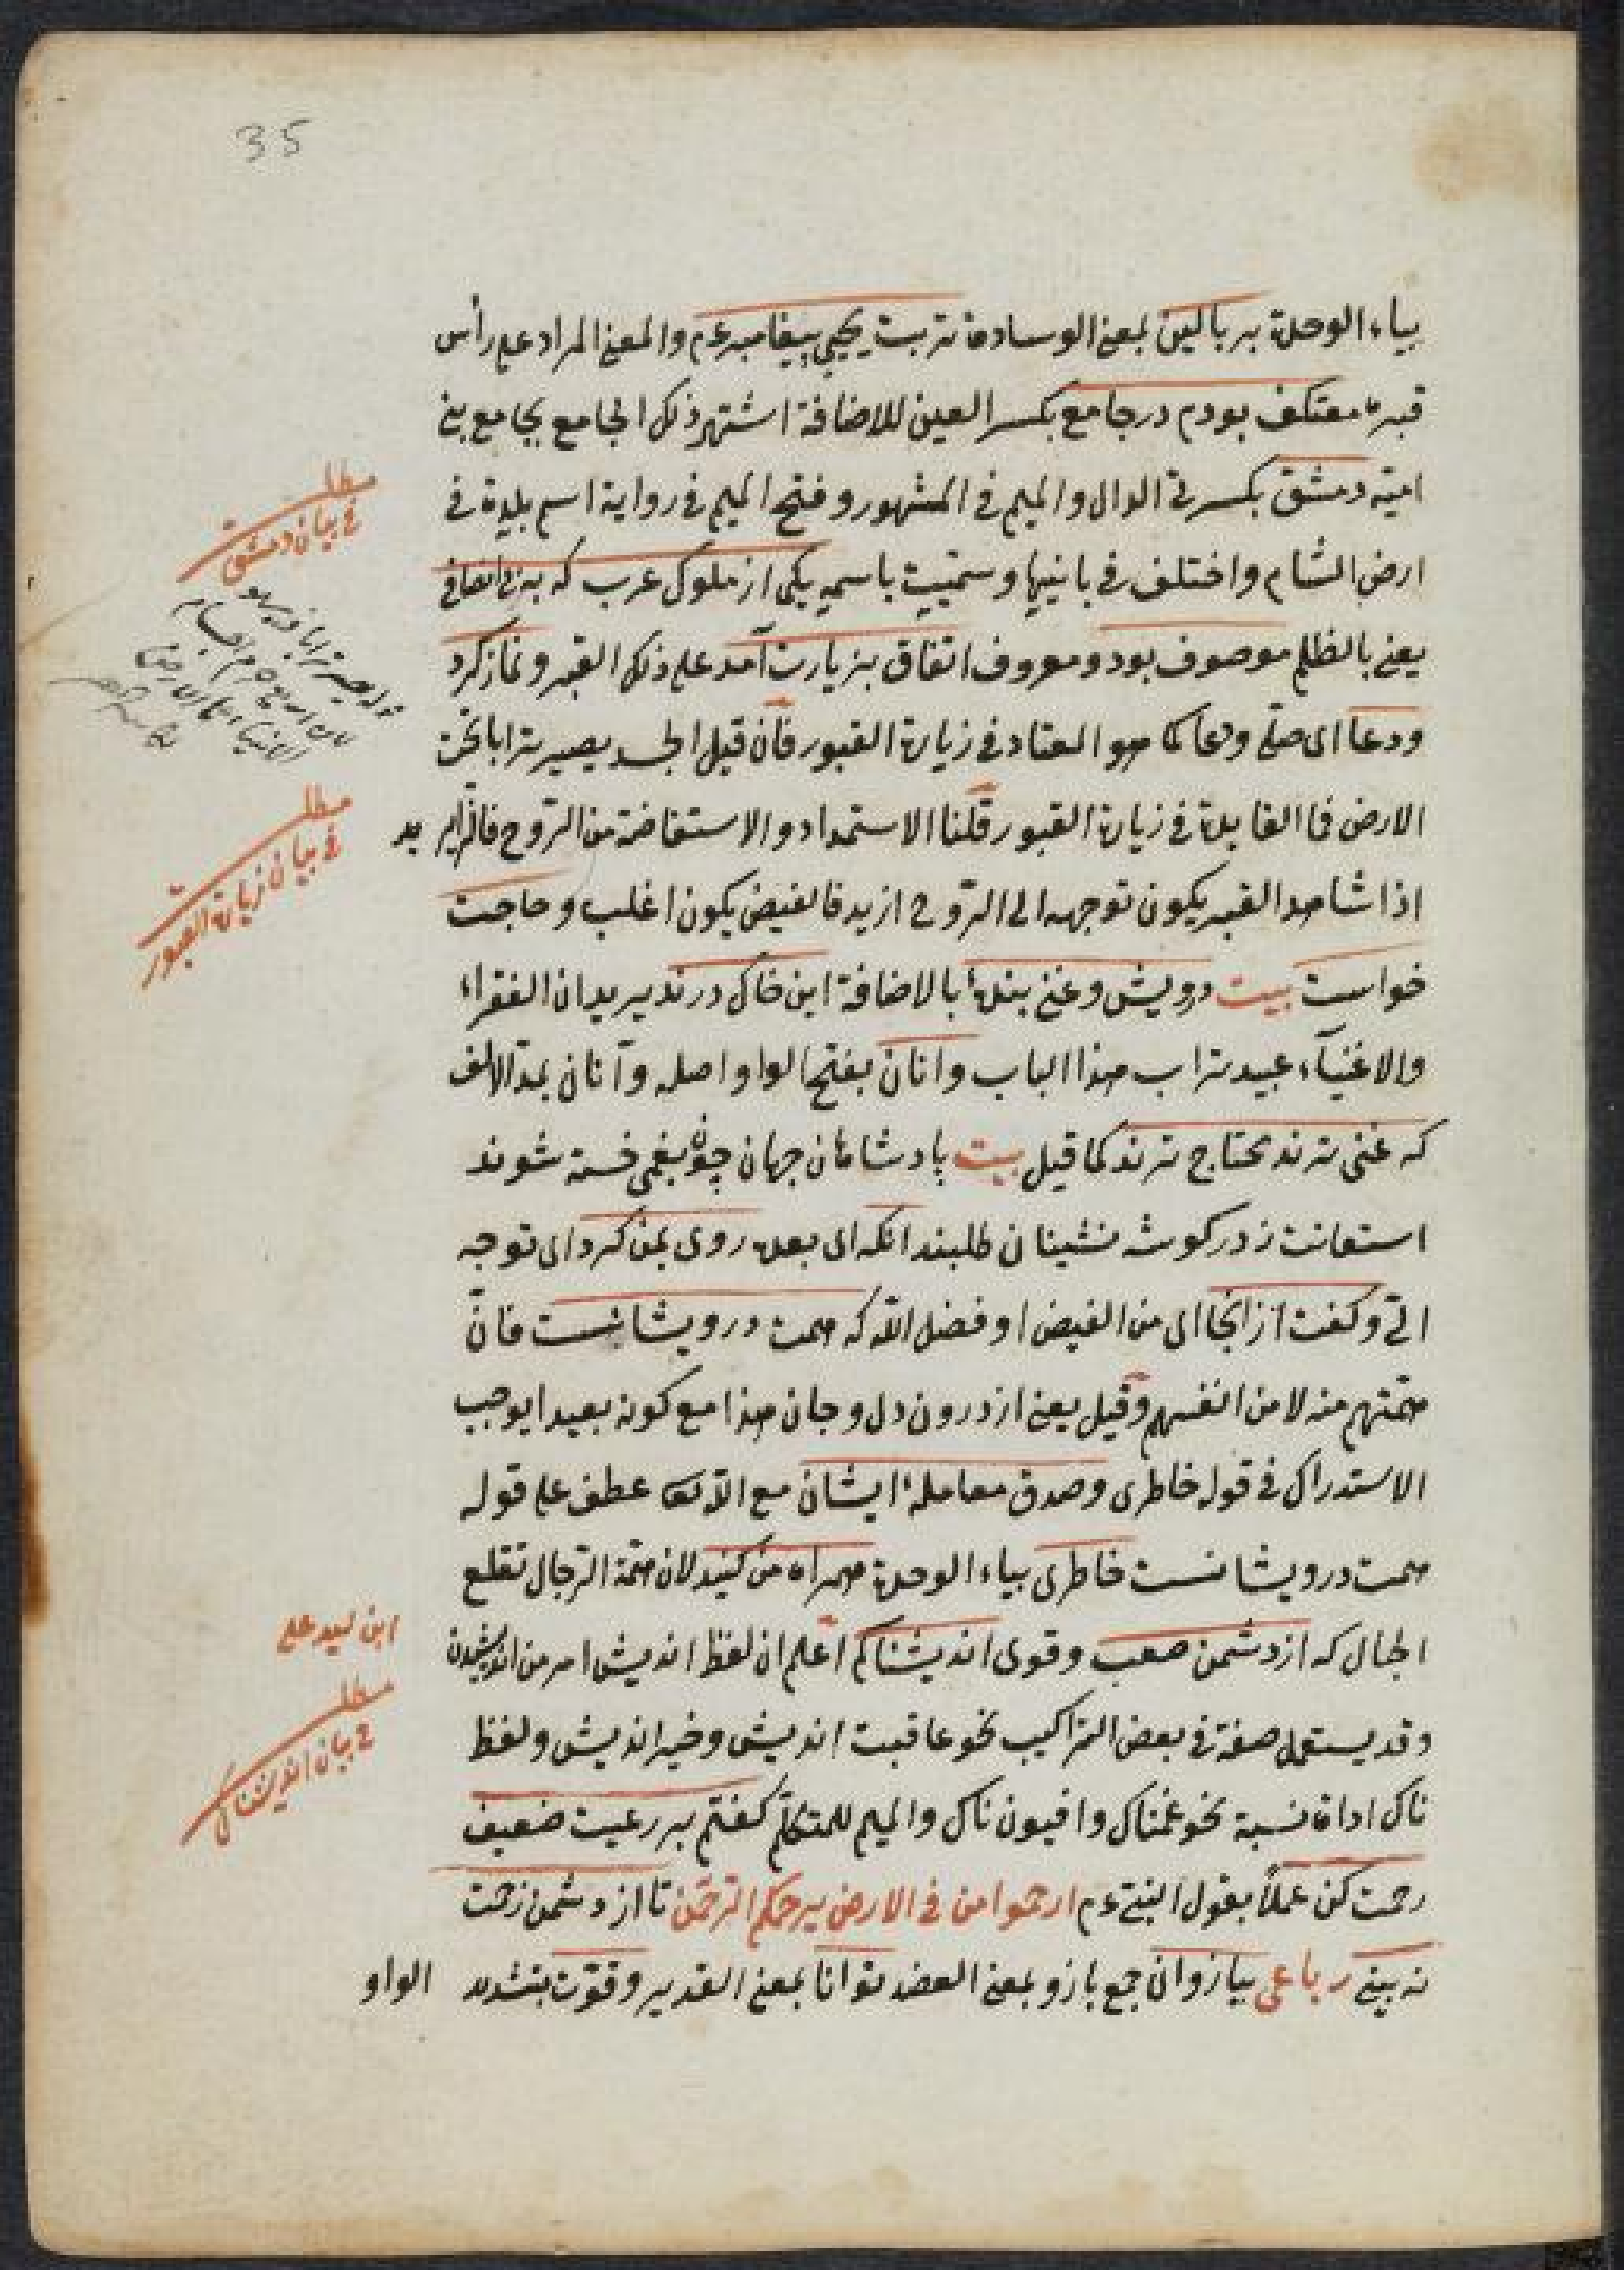 35
بياء الوحدة بر بالين بمعنى الوسادة تربت يحيى پيغامبر عم والمعنى المراد على رأس
قبره معتكف بودم در جامع بكسر العين للاضافة اشتهر ذلك الجامع بجامع بنى
امية دمشق بكسرتى الدال والميم فى المشهور وفتح الميم فى رواية اسم بلدة فى
ارض الشام واختلف فى بانيها وسميت باسمه يكى از ملوك عرب كه به بى انصافى
يعنى بالظلم موصوف بود ومعروف اتفاق بزيارت آمد على ذلك القبر ونماز كرد
ودعا اى صلى ودعا كما هو المعتاد فى زيارة القبور فان قيل الجسد يصير ترابا تحت
الارض فما الفايدة فى زيارة القبور قلنا الاستمداد والاستفاضة من الروح فالزاير
اذا شاهد القبر يكون توجهه الى الروح ازيد فالفيض يكون اغلب وحاجت
خواست بيت درويش وغنى بندهٔ بالاضافة اين خاك درند يريد ان الفقراء
والاغنياء عبيد تراب هذا الباب وانان بفتح الواو اصله وآنان بمد الالف
كه غنى ترند محتاج ترند كما قيل بيت پادشاهان جهان چون بغمى خسته شوند
استعانت ز در كوشه نشينان طلبند انكه اى بعده روى بمن كرد اى توجه
الىّ وكفت از انجا اى من الفيض او فضل الله كه همت درويشانست فانّ
همتهم منه لا من انفسهم وقيل يعنى از درون دل وجان هذا مع كونه بعيدا يوجب
الاستدراك فى قوله خاطرى وصدق معاملهٔ ايشان مع الله تعالى عطف على قوله
همت درويشانست خاطرى بياء الوحدة همراه من كنيد لان همة الرجال تقلع
الجبال كه از دشمن صعب وقوى انديشناكم اعلم ان لفظ انديش امر من انديشيدن
وقد يستعمل صفة فى بعض التراكيب نحو عاقبت انديش وخير انديش ولفظ
ناك اداة نسبة نحو غمناك وافيون ناك والميم للمتكلم كفتم بر رعيت ضعيف
رحمت كن عملاً بقول النبى عم ارحموا من فى الارض يرحمكم الرحمن تا از دشمن زحمت
نه بينى رباعى ببازوان جمع بازو بمعنى العضد توانا بمعنى القدير وقوّت بتشديد
الواو
مطلب
فى بيان دمشق
مطلب
فى بيان زيارة القبور
ابن سيد على
مطلب
فى بيان انديشناك